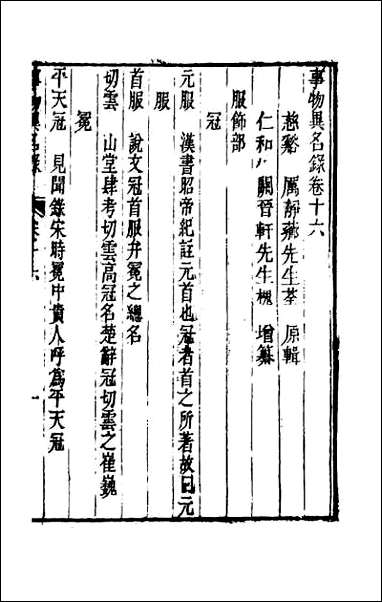 事物異名錄卷十六
慈谿　厲靜薌先生荃　原輯
仁和　關晉軒先生槐　增纂
服飾部
冠
元服　漢書昭帝紀註元首也冠者首之所著故曰元
服
首服　說文冠首服弁冕之總名
切雲　山堂肆考切雲高冠名楚辭冠切雲之崔巍
冕
平天冠　見聞錄宋時冕中貴人呼爲平天冠
事物異名錄　卷十六　一